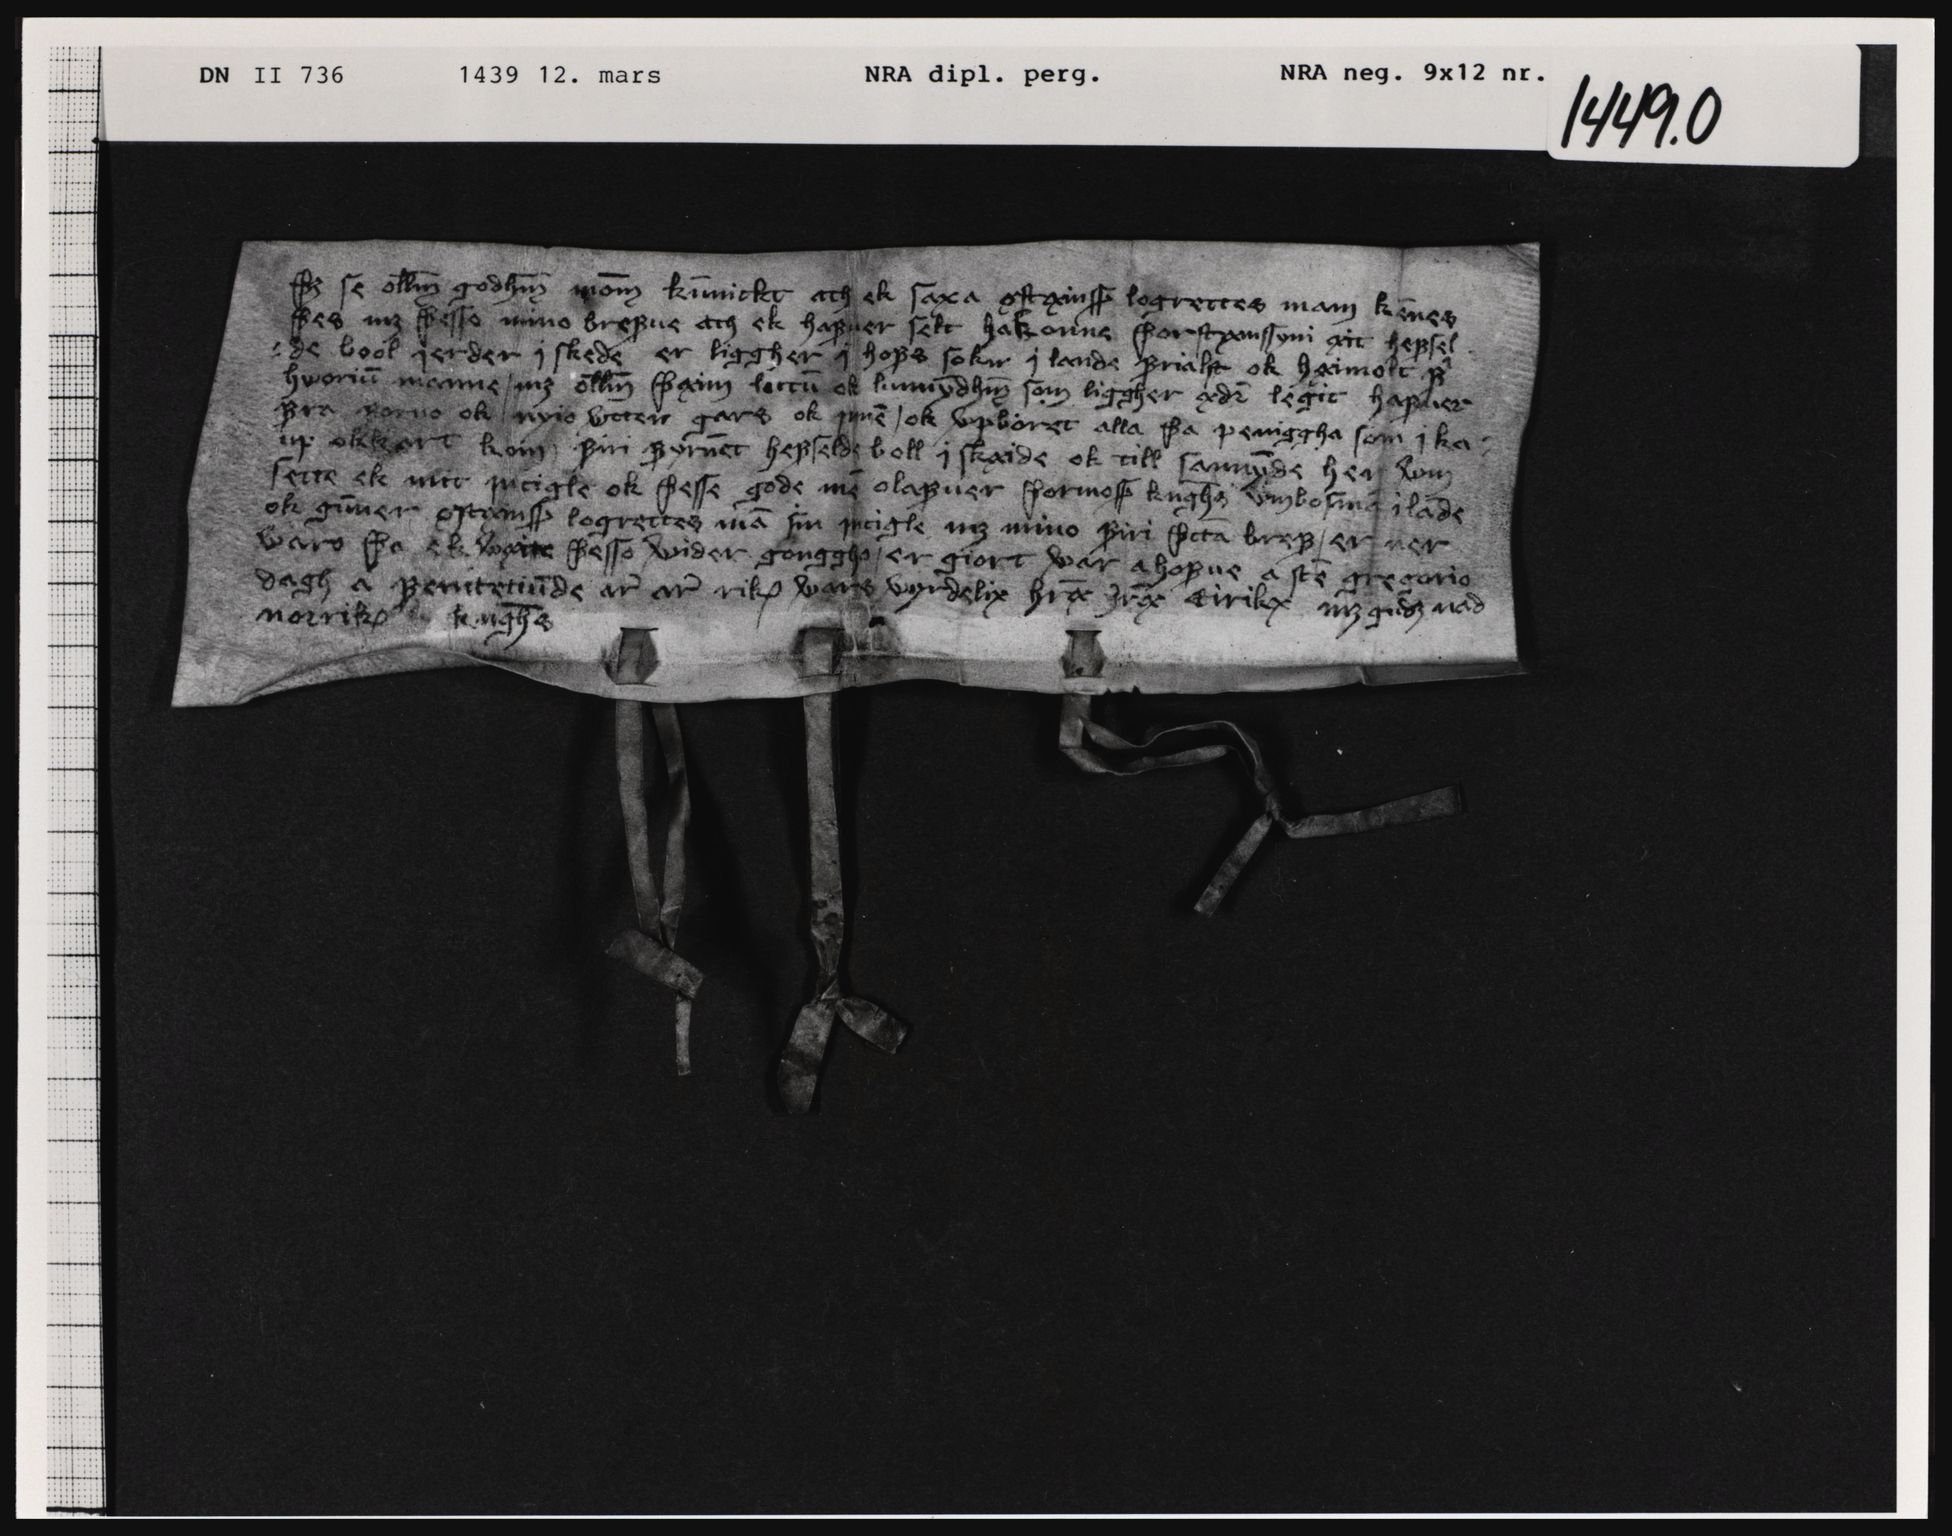 DN II 736 1439 12. mars NRA dipl. perg. NRA neg. 9x12 nr. 1449.0
Þz se ollm̄ godhm̄ mōm kūnickt ath ek saxa øystæinssꝭ logrettes man kēnes
þes mz þesso mino brefue ath ek hafuer selt hakonne þorstæinssyni æit hefsel
de bool jerder i skede er liggher i hofs sokn i lande frialst ok hæimolt fꝛ
hvoriū manne / mz ollm̄ þæim luttū ok lunnȳdhm̄ som liggher ædꝛ legit hafuer
fra forno ok nyio vtten gars ok innē / ok vpboret alla þa peniggha som i ka
up okkart kom firi fyrnēt hefseldeboll i skæide ok till sannynde her vm
sette ek mit incigle ok þesse gode mē olafuer þormossꝭ knghs vmbosman i lāde
ok gūner øystæinssꝭ logrettes mā sin incigle mz mino firi þettā bref / er ner
varo þa ek veitte þesso vider gonggho / er giort var a hofue a scē gregorio
dagh a femtetiūnde ar ar rikꝭ vars vyrdelix hræ jræ Eirikx mz gudz nad
norrikꝭ knghs